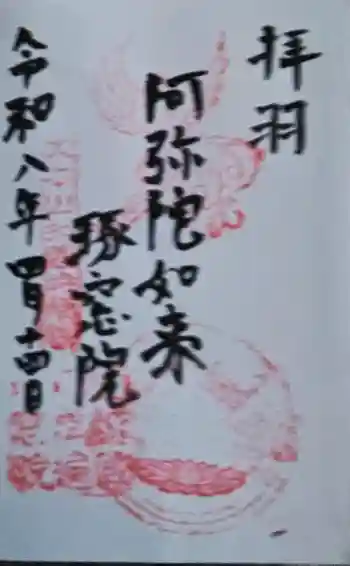 拝羽
阿弥陀如来
琢窓院
令和八年四月十四日